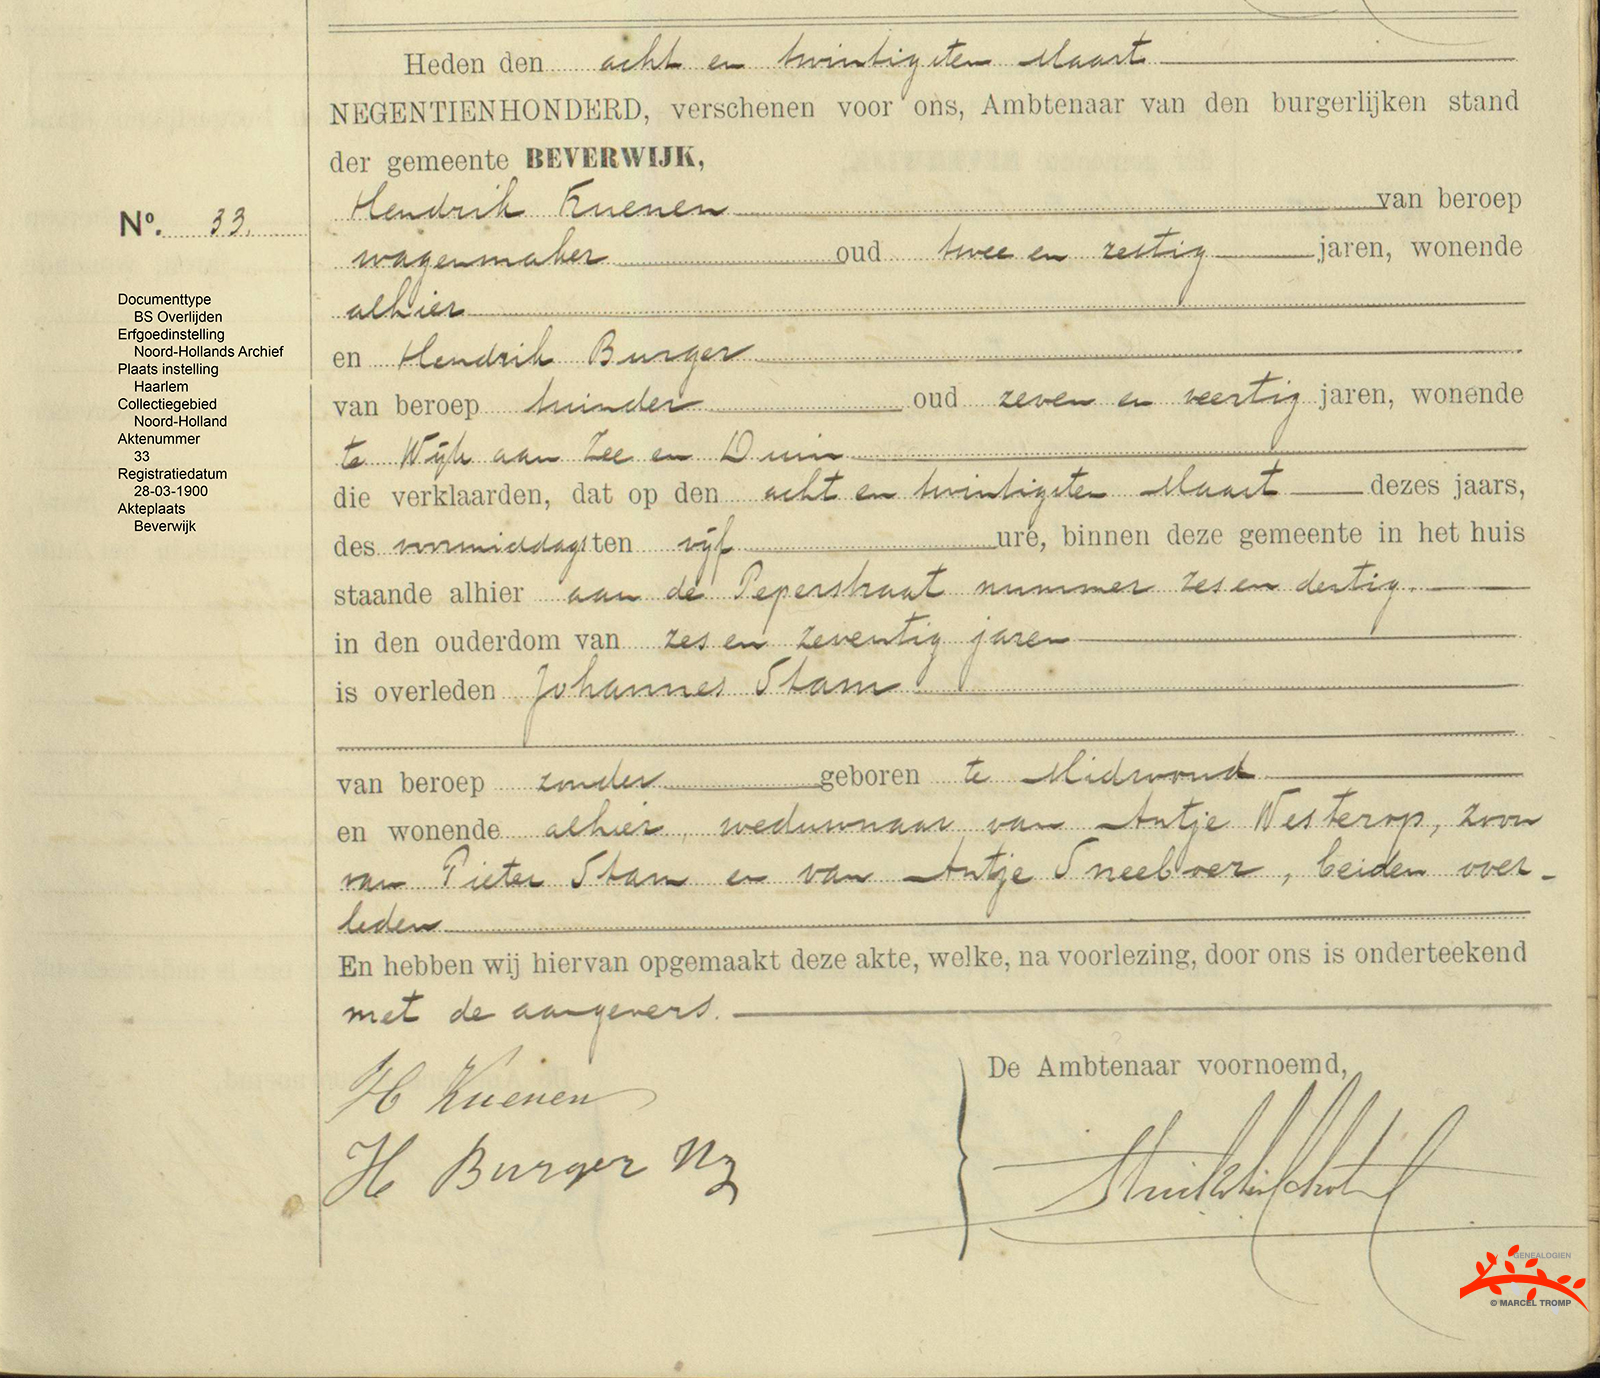 Heden den acht en twintigsten Maart
NEGENTIENHONDERD, verschenen voor ons, Ambtenaar van den burgerlijken stand
der gemeente BEVERWIJK,
Hendrik Kuenen van beroep
Nº. 33.
wagenmaker oud twee en zestig jaren, wonende
alhier
en Hendrik Burger
van beroep tuinder oud zeven en veertig jaren, wonende
te Wijk aan Zee en Duin
die verklaarden, dat op den acht en twintigsten Maart dezes jaars,
des voormiddags ten vijf ure, binnen deze gemeente in het huis
staande alhier aan de Peperstraat nummer zes en dertig.
in den ouderdom van zes en zeventig jaren
is overleden Johannes Stam
van beroep zonder geboren te Midwoud
en wonende alhier, weduwnaar van Antje Westerop, zoon
van Pieter Stam en van Antje Sneeboer, beiden over-
leden
En hebben wij hiervan opgemaakt deze akte, welke, na voorlezing, door ons is onderteekend
met de aangevers.
De Ambtenaar voornoemd,
H Kuenen
H Burger Nz
Documenttype
BS Overlijden
Erfgoedinstelling
Noord-Hollands Archief
Plaats instelling
Haarlem
Collectiegebied
Noord-Holland
Aktenummer
33
Registratiedatum
28-03-1900
Akteplaats
Beverwijk
GENEALOGIEN
© MARCEL TROMP